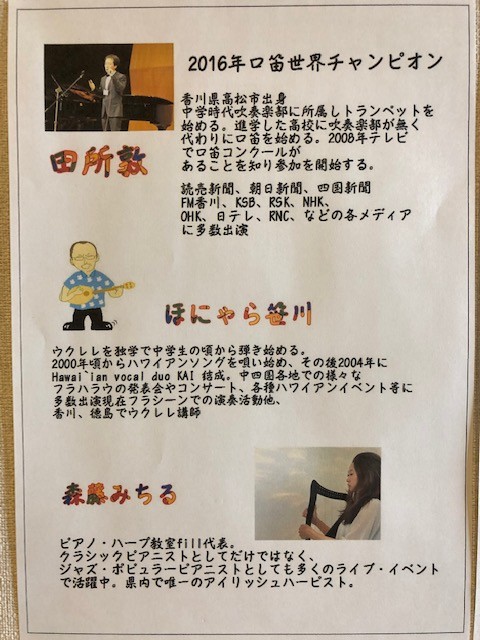 2016年口笛世界チャンピオン
香川県高松市出身
中学時代吹奏楽部に所属しトランペットを
始める。進学した高校に吹奏楽部が無く
代わりに口笛を始める。2008年テレビ
で口笛コンクールが
あることを知り参加を開始する。
田所敦
読売新聞、朝日新聞、四国新聞
FM香川、KSB、RSK、NHK、
OHK、日テレ、RNC、などの各メディア
に多数出演
ほにゃら笹川
ウクレレを独学で中学生の頃から弾き始める。
2000年頃からハワイアンソングを唄い始め、その後2004年に
Hawai`ian vocal duo KAI 結成。中四国各地での様々な
フラハラウの発表会やコンサート、各種ハワイアンイベント等に
多数出演現在フラシーンでの演奏活動他、
香川、徳島でウクレレ講師
森藤みちる
ピアノ・ハープ教室fill代表。
クラシックピアニストとしてだけではなく、
ジャズ・ポピュラーピアニストとしても多くのライブ・イベント
で活躍中。県内で唯一のアイリッシュハーピスト。